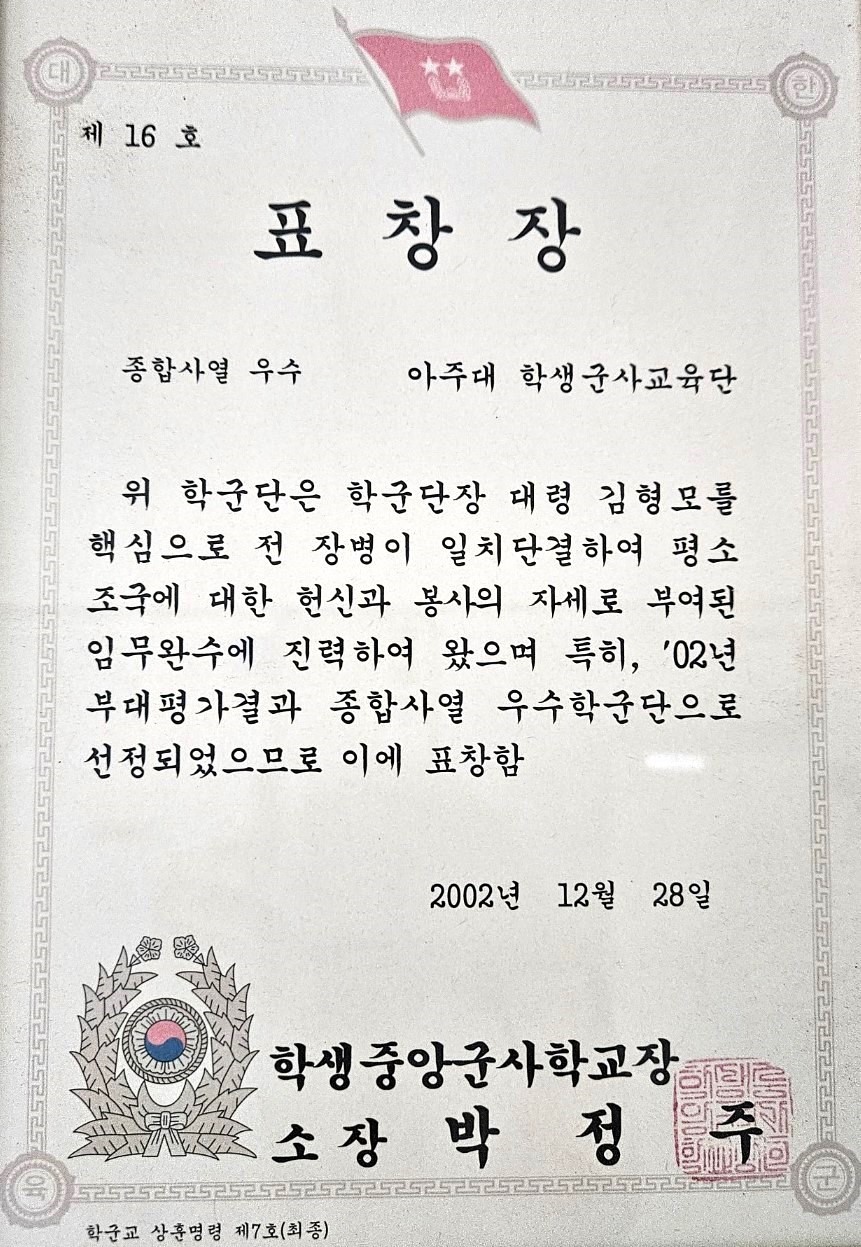 대 한
제 16 호
표 창 장
종합사열 우수 아주대 학생군사교육단
위 학군단은 학군단장 대령 김형모를
핵심으로 전 장병이 일치단결하여 평소
조국에 대한 헌신과 봉사의 자세로 부여된
임무완수에 진력하여 왔으며 특히, '02년
부대평가결과 종합사열 우수학군단으로
선정되었으므로 이에 표창함
2002년 12월 28일
학생중앙군사학교장
소장 박 정 주
육 군
학군교 상훈명령 제7호(최종)